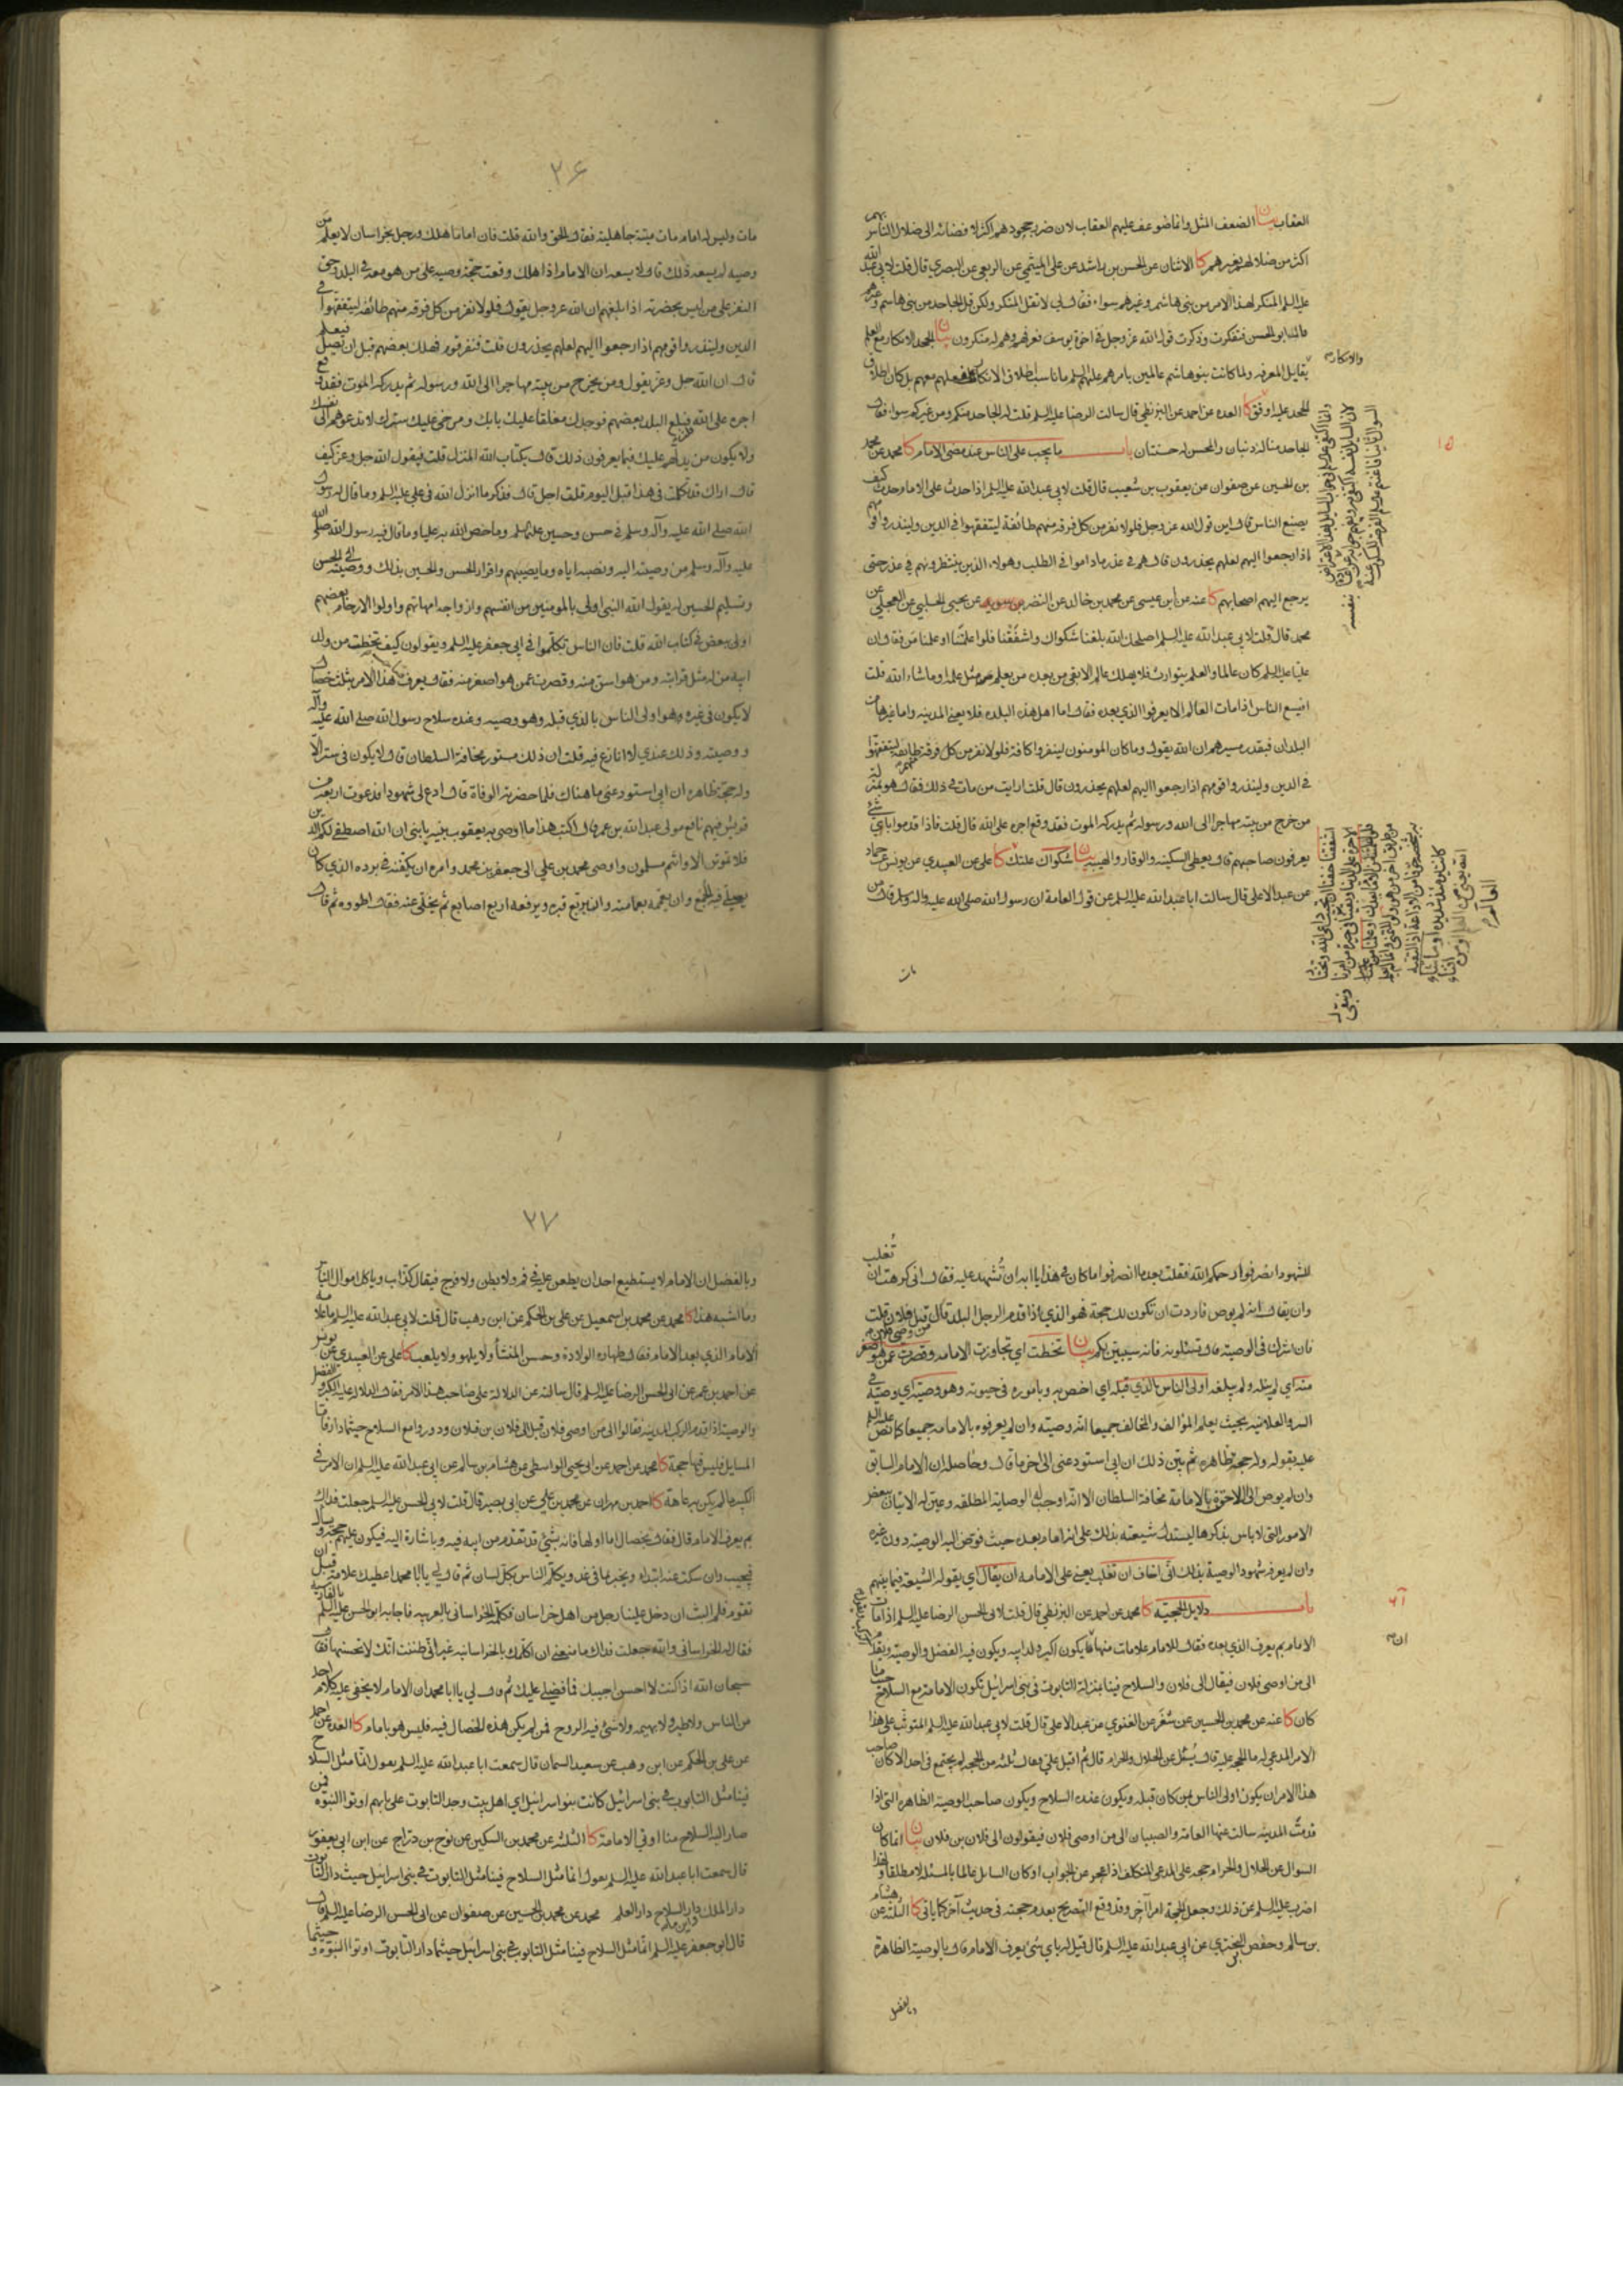 العقاب بيان الضعف المثل وانما ضوعف عليهم العقاب لان ضرر جحودهم اكثر لافضائه الى ضلال الناس بهم
اكثر من ضلالهم بغيرهم كا الاثنان عن الحسن بن راشد عن علي الميثمي عن الربعي عن البصري قال قلت لابي عبد الله
عليه السلم المنكر لهذا الامر من بني هاشم وغيرهم سواء فقال لي لا تقل المنكر ولكن قل الجاحد من بني هاشم وغيرهم
قال ابو الحسن فتفكرت وذكرت قول الله عز وجل في اخوة يوسف فعرفهم وهم له منكرون بيان الجحد الانكار مع العلم
يقابل المعرفة ولما كانت بنو هاشم عالمين بامرهم عليهم السلم ما ناسب اطلاق الانكار
والانكار
للجحد عليه اوفق كا العدة عن احمد عن البزنطي قال سالت الرضا عليه السلم قلت له الجاحد منكم ومن غيركم سواء فقال
الجاحد منا له ذنبان والمحسن له حسنتان باب ما يجب على الناس عند مضي الامام كا محمد عن محمد
١٥
بن الحسين عن صفوان عن يعقوب بن شعيب قال قلت لابي عبد الله عليه السلم اذا حدث على الامام حدث كيف
يصنع الناس قال اين قول الله عز وجل فلولا نفر من كل فرقة منهم طائفة ليتفقهوا في الدين ولينذروا قومهم
اذا رجعوا اليهم لعلهم يحذرون قال هم في عذر ما داموا في الطلب وهولاء الذين ينتظرونهم في عذر حتى
يرجع اليهم اصحابهم كا عنه عن ابن عيسى عن محمد بن خالد عن النضر بن سويد عن يحيى الحلبي عن العجلي عن
محمد قال قلت لابي عبد الله عليه السلم اصلحك الله بلغنا شكواك واشفقنا فلو اعلمتنا او علمنا من فقال ان
عليا عليه السلم كان عالما والعلم يتوارث فلا يهلك عالم الا بقي من بعده من يعلم مثل علمه او ما شاء الله قلت
افيسع الناس اذا مات العالم الا يعرفوا الذي بعده فقال اما اهل هذه البلدة فلا يعني المدينة واما غيرها من
البلدان فبقدر مسيرهم ان الله يقول وما كان المومنون لينفروا كافة فلولا نفر من كل فرقة منهم طائفة ليتفقهوا
في الدين ولينذروا قومهم اذا رجعوا اليهم لعلهم يحذرون قال قلت ارايت من مات في ذلك فقال هو بمنزلة
من خرج من بيته مهاجرا الى الله ورسوله ثم يدركه الموت فقد وقع اجره على الله قال قلت فاذا قدموا باي شئ
يعرفون صاحبهم قال يعطى السكينة والوقار والهيبة بيان شكواك علتك كا علي عن العبيدي عن يونس عن حماد
عن عبد الاعلى قال سالت ابا عبد الله عليه السلم عن قول العامة ان رسول الله صلى الله عليه واله وسلم قال من
مات
٢٦
مات وليس له امام مات ميتة جاهلية فقال الحق والله قلت فان اماما هلك ورجل بخراسان لا يعلم من
وصيه لم يسعه ذلك قال لا يسعه ان الامام اذا هلك وقعت حجة وصيه على من هو معه في البلد وحق
النفر على من ليس بحضرته اذا بلغهم ان الله عز وجل يقول فلولا نفر من كل فرقة منهم طائفة ليتفقهوا في
الدين ولينذروا قومهم اذا رجعوا اليهم لعلهم يحذرون قلت فنفر قوم فهلك بعضهم قبل ان يصل فيعلم
قال ان الله جل وعز يقول ومن يخرج من بيته مهاجرا الى الله ورسوله ثم يدركه الموت فقد وقع
اجره على الله قلت فبلغ البلد بعضهم فوجدك مغلقا عليك بابك ومرخى عليك سترك لا تدعوهم الى نفسك
ولا يكون من يدلهم عليك فبما يعرفون ذلك قال بكتاب الله المنزل قلت فيقول الله جل وعز كيف
قال اراك قد تكلمت في هذا قبل اليوم قلت اجل قال فذكر ما انزل الله في علي عليه السلم وما قال له رسول
الله صلى الله عليه وآله وسلم في حسن وحسين عليهما السلم وما خص الله به عليا وما قال فيه رسول الله صلى الله
عليه وآله وسلم من وصيته اليه ونصبه اياه وما يصيبهم واقرار الحسن والحسين بذلك ووصيته الى الحسن
وتسليم الحسين له بقول الله النبي اولى بالمومنين من انفسهم وازواجه امهاتهم واولوا الارحام بعضهم
اولى ببعض في كتاب الله قلت فان الناس تكلموا في ابي جعفر عليه السلم ويقولون كيف تخطت من ولد
ابيه من له مثل قرابته ومن هو اسن منه وقصرت عمن هو اصغر منه فقال يعرف صاحب هذا الامر بثلث خصال
لا يكون في غيره وهو اولى الناس بالذي قبله وهو وصيه وعنده سلاح رسول الله صلى الله عليه وآله
ووصيته وذلك عندي لا انازع فيه قلت ان ذلك مستور مخافة السلطان قال لا يكون في ستر الا
وله حجة ظاهرة ان ابي استودعني ما هناك فلما حضرته الوفاة قال ادع لي شهودا فدعوت اربعة من
قريش فيهم نافع مولى عبد الله بن عمر قال اكتب هذا ما اوصى به يعقوب بنيه يا بني ان الله اصطفى لكم الدين
فلا تموتن الا وانتم مسلمون واوصى محمد بن علي الى جعفر بن محمد وامره ان يكفنه في برده الذي كان
يصلي فيه الجمع وان يعممه بعمامته وان يربع قبره ويرفعه اربع اصابع ثم يخلي عنه فقال اطووه ثم قال
للشهود انصرفوا رحمكم الله فقلت بعد ما انصرفوا ما كان في هذا يا ابه ان تشهد عليه فقال اني كرهت ان تغلب
وان يقال انه لم يوص فاردت ان تكون لك حجة فهو الذي اذا قدم الرجل البلد قال من وصي فلان قيل فلان قلت
فان اشرك في الوصية قال تسئلونه فانه سيبين لكم بيان تخطت اي تجاوزت الامامة وقصرت عمن هو اصغر
منه اي لم ينله ولم يبلغه اولى الناس بالذي قبله اي اخص به وباموره في حيوته وهو وصيه اي وصيه في
السر والعلانية بحيث يعلم المؤالف والمخالف جميعا انه وصيه وان لم يعرفوه بالامامة جميعا كما نص عليه السلم
عليه بقوله وله حجة ظاهرة ثم بين ذلك ان ابي استودعني الى اخر ما قال وحاصله ان الامام السابق
وان لم يوص الى اللاحق بالامامة مخافة السلطان الا انه اوجب له الوصاية المطلقة وعين له الاتيان ببعض
الامور التي لا باس بذكرها ليستدل شيعته بذلك على انه امام بعده حيث فوض اليه الوصية دون غيره
وان لم يعرف شهود الوصية بذلك اني اخاف ان تغلب يعني على الامامة ان يقال اي يقوله الشيعة فيما بينهم
باب دلايل الحجية كا محمد عن احمد عن البزنطي قال قلت لابي الحسن الرضا عليه السلم اذا مات
الامام بم يعرف الذي بعده فقال للامام علامات منها يكون اكبر ولد ابيه ويكون فيه الفضل والوصية ويقدم
ان
الى من اوصى فلان فيقال الى فلان والسلاح فينا بمنزلة التابوت في بني اسرائيل تكون الامامة مع السلاح حيثما
كان كا عنه عن محمد بن الحسين عن شعر عن الغنوي عن عبد الاعلى قال قلت لابي عبد الله عليه السلم المتوثب على هذا
الامر المدعي له ما الحجة عليه قال يسئل عن الحلال والحرام قال ثم اقبل علي فقال ثلثة من الحجة لم يجتمع في احد الا كان صاحب
هذا الامر ان يكون اولى الناس بمن كان قبله ويكون عنده السلاح ويكون صاحب الوصية الظاهرة التي اذا
قدمت المدينة سالت عنها العامة والصبيان الى من اوصى فلان فيقولون الى فلان بن فلان بيان انما كان
السوال عن الحلال والحرام حجة على المدعي المتكلف اذا عجز عن الجواب او كان السايل عالما بالمسئلة لا مطلقا ولهذا
اضرب عليه السلم عن ذلك وجعل الحجة امرا آخر وقد وقع التصريح بعدم حجيته في حديث آخر كما ياتي كا الثلثة عن هشام
بن سالم وحفص البختري عن ابي عبد الله عليه السلم قال قيل له باي شئ يعرف الامام قال بالوصية الظاهرة
وبالفضل
٢٧
وبالفضل ان الامام لا يستطيع احد ان يطعن عليه في فم ولا بطن ولا فرج فيقال كذاب وياكل اموال الناس
وما اشبه هذا كا محمد عن محمد بن اسمعيل عن علي بن الحكم عن ابن وهب قال قلت لابي عبد الله عليه السلم ما علامة
الامام الذي بعد الامام فقال طهارة الولادة وحسن المنشأ ولا يلهو ولا يلعب كا علي عن العبيدي عن يونس
عن احمد بن عمر عن ابي الحسن الرضا عليه السلم قال سالته عن الدلالة على صاحب هذا الامر فقال الدلالة عليه الكبر والفضل
والوصية اذا قدم الركب المدينة فقالوا الى من اوصى فلان قيل الى فلان بن فلان ودوروا مع السلاح حيثما دار فاما
المسايل فليس فيها حجة كا محمد عن احمد عن ابي يحيى الواسطي عن هشام بن سالم عن ابي عبد الله عليه السلم ان الامر في
الكبير ما لم يكن به عاهة كا احمد بن مهران عن محمد بن علي عن ابي بصير قال قلت لابي الحسن عليه السلم جعلت فداك
بم يعرف الامام قال فقال بخصال اما اولها فانه بشئ قد تقدم من ابيه فيه وباشارة اليه فيكون عليهم حجة ويسال
فيجيب وان سكت عنه ابتدا ويخبر بما في غد ويكلم الناس بكل لسان ثم قال لي يا ابا محمد اعطيك علامة قبل ان
تقوم فلم البث ان دخل علينا رجل من اهل خراسان فكلمه الخراساني بالعربية فاجابه ابو الحسن عليه السلم بالفارسية
فقال له الخراساني والله جعلت فداك ما منعني ان اكلمك بالخراسانية غير اني ظننت انك لا تحسنها فقال
سبحان الله اذا كنت لا احسن اجيبك فما فضلي عليك ثم قال لي يا ابا محمد ان الامام لا يخفى عليه كلام احد
من الناس ولا طير ولا بهيمة ولا شئ فيه الروح فمن لم يكن هذه الخصال فيه فليس هو بامام كا العدة عن احمد
عن علي بن الحكم عن ابن وهب عن سعيد السمان قال سمعت ابا عبد الله عليه السلم يقول انما مثل السلاح
فينا مثل التابوت في بني اسرائيل كانت بنو اسرائيل اي اهل بيت وجد التابوت على بابهم اوتوا النبوة فمن
صار اليه السلاح منا اوتي الامامة كا الثلثة عن محمد بن السكين عن نوح بن دراج عن ابن ابي يعفور
قال سمعت ابا عبد الله عليه السلم يقول انما مثل السلاح فينا مثل التابوت في بني اسرائيل حيث دار التابوت
دار الملك واين دار السلاح دار العلم محمد عن محمد بن الحسين عن صفوان عن ابي الحسن الرضا عليه السلم قال
قال ابو جعفر عليه السلم انما مثل السلاح فينا مثل التابوت في بني اسرائيل حيثما دار التابوت اوتوا النبوة وحيثما